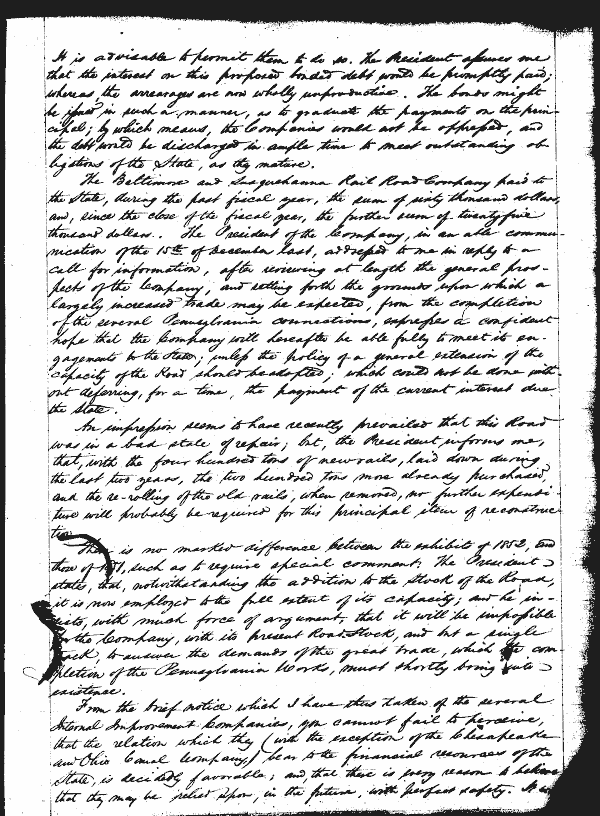 It is advisable to permit them to do so. The President assures me
that the interest on this proposed bonded debt would be promptly paid;
whereas, the arrearages are now wholly unproductive. The bonds might
be issued in such a manner, as to graduate the payments on the prin-
cipal; by which means, the Companies would not be oppressed, and
the debt would be discharged in ample time to meet outstanding ob-
ligations of the State, as they mature.
The Baltimore and Susquehanna Rail Road Company paid to
the State, during the past fiscal year, the sum of sixty thousand dollars,
and, since the close of the fiscal year, the further sum of twenty five
thousand dollars. The President of the Company, in an able commu-
nication of the 15th of December last, addressed to me in reply to a
call for information, after reviewing at length the general pros-
pects of the Company, and setting forth the grounds upon which a
largely increased trade may be expected, from the completion
of the several Pennsylvania connections, expresses a confident
hope that the Company will hereafter be able fully to meet its en-
gagements to the State; unless the policy of a general extension of the
capacity of the Road should be adopted; which could not be done with-
out deferring, for a time, the payment of the current interest due
the State.
An impression seems to have recently prevailed that this Road
was in a bad state of repair; but, the President informs me,
that, with the four hundred tons of new rails, laid down during
the last two years, the two hundred tons more already purchased,
and the re-rolling of the old rails, when removed, no further expendi-
ture will probably be required for this principal item of reconstruc
tion.
There is no marked difference between the exhibits of 1852, and
those of 1851, such as to require special comment. The President
states, that, notwithstanding the addition to the Stock of the Road,
it is now employed to the full extent of its capacity; and he in-
sists, with much force of argument, that it will be impossible
for the Company, with its present Road Stock, and but a single
track, to answer the demands of the great trade, which the com-
pletion of the Pennsylvania Works, must shortly bring into
existence.
From the brief notice which I have thus taken of the several
Internal Improvement Companies, you cannot fail to perceive,
that the relation which they (with the exception of the Chesapeake
and Ohio Canal Company,) bear to the financial resources of the
State, is decidedly favorable; and that there is every reason to believe
that they may be relied upon, in the future, with perfect safety. It